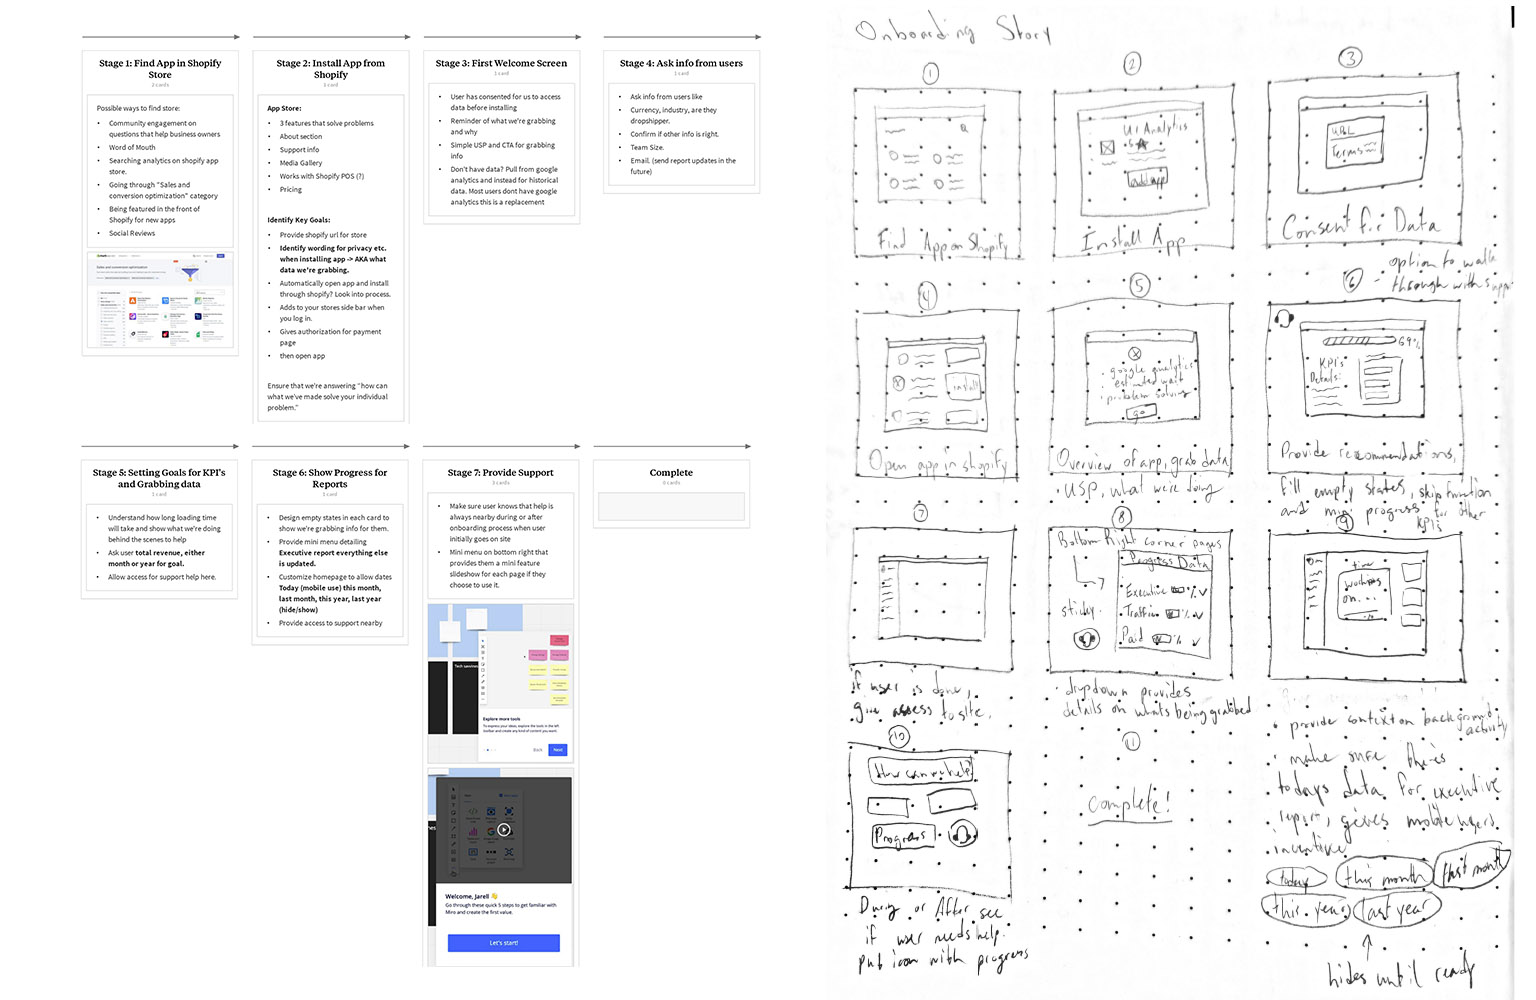 Stage 1: Find App in Shopify
Store
2 cards
Possible ways to find store:
• Community engagement on
questions that help business owners
• Word of Mouth
• Searching analytics on shopify app
store.
• Going through "Sales and
conversion optimization" category
• Being featured in the front of
Shopify for new apps
• Social Reviews
Sales and conversion optimization
Stage 2: Install App from
Shopify
1 card
App Store:
• 3 features that solve problems
• About section
• Support info
• Media Gallery
• Works with Shopify POS (?)
• Pricing
Identify Key Goals:
• Provide shopify url for store
• Identify wording for privacy etc.
when installing app -> AKA what
data we're grabbing.
• Automatically open app and install
through shopify? Look into process.
• Adds to your stores side bar when
you log in.
• Gives authorization for payment
page
• then open app
Ensure that we're answering "how can
what we've made solve your individual
problem."
Stage 3: First Welcome Screen
1 card
• User has consented for us to access
data before installing
• Reminder of what we're grabbing
and why
• Simple USP and CTA for grabbing
info
• Don't have data? Pull from google
analytics and instead for historical
data. Most users dont have google
analytics this is a replacement
Stage 4: Ask info from users
1 card
• Ask info from users like
• Currency, industry, are they
dropshipper.
• Confirm if other info is right.
• Team Size.
• Email. (send report updates in the
future)
Stage 5: Setting Goals for KPI's
and Grabbing data
1 card
• Understand how long loading time
will take and show what we're doing
behind the scenes to help
• Ask user total revenue, either
month or year for goal.
• Allow access for support help here.
Stage 6: Show Progress for
Reports
1 card
• Design empty states in each card to
show we're grabbing info for them.
• Provide mini menu detailing
Executive report everything else
is updated.
• Customize homepage to allow dates
Today (mobile use) this month,
last month, this year, last year
(hide/show)
• Provide access to support nearby
Stage 7: Provide Support
3 cards
• Make sure user knows that help is
always nearby during or after
onboarding process when user
initially goes on site
• Mini menu on bottom right that
provides them a mini feature
slideshow for each page if they
choose to use it.
Explore more tools
To express your ideas, explore the tools in the left
toolbar and create any kind of content you want.
Back
Next
Welcome, Jarell 👋
Go through these quick 5 steps to get familiar with
Miro and create the first value.
Let's start!
Complete
0 cards
Onboarding Story
1
Find App on Shopify
2
UI Analytics
5★
add app
Install App
3
URL
Terms
Consent for Data
4
install
Open app in shopify
5
• google analytics
• estimated wait
• problem solving
go
Overview of app, grab data
• USP, what we're doing
6 - option to walk
through with support
69%
KPI's
Details:
Provide recommendations,
fill empty states, skip function
and mini progress for other
KPI's
7
if user is done,
give access to site.
8
Bottom Right corner pages
sticky
Progress Data
Executive % ✓
Traffic % ✓
Paid % ✓
• dropdown provides
details on whats being grabbed
9
time
working
on...
• provide context on background
activity
• make sure theres
todays data for executive
report, gives mobile users
incentive
today
this month
last month
this year
last year
hides until ready
10
How can we help?
Progress
During or After see
if user needs help.
put icon with progress
11
Complete!